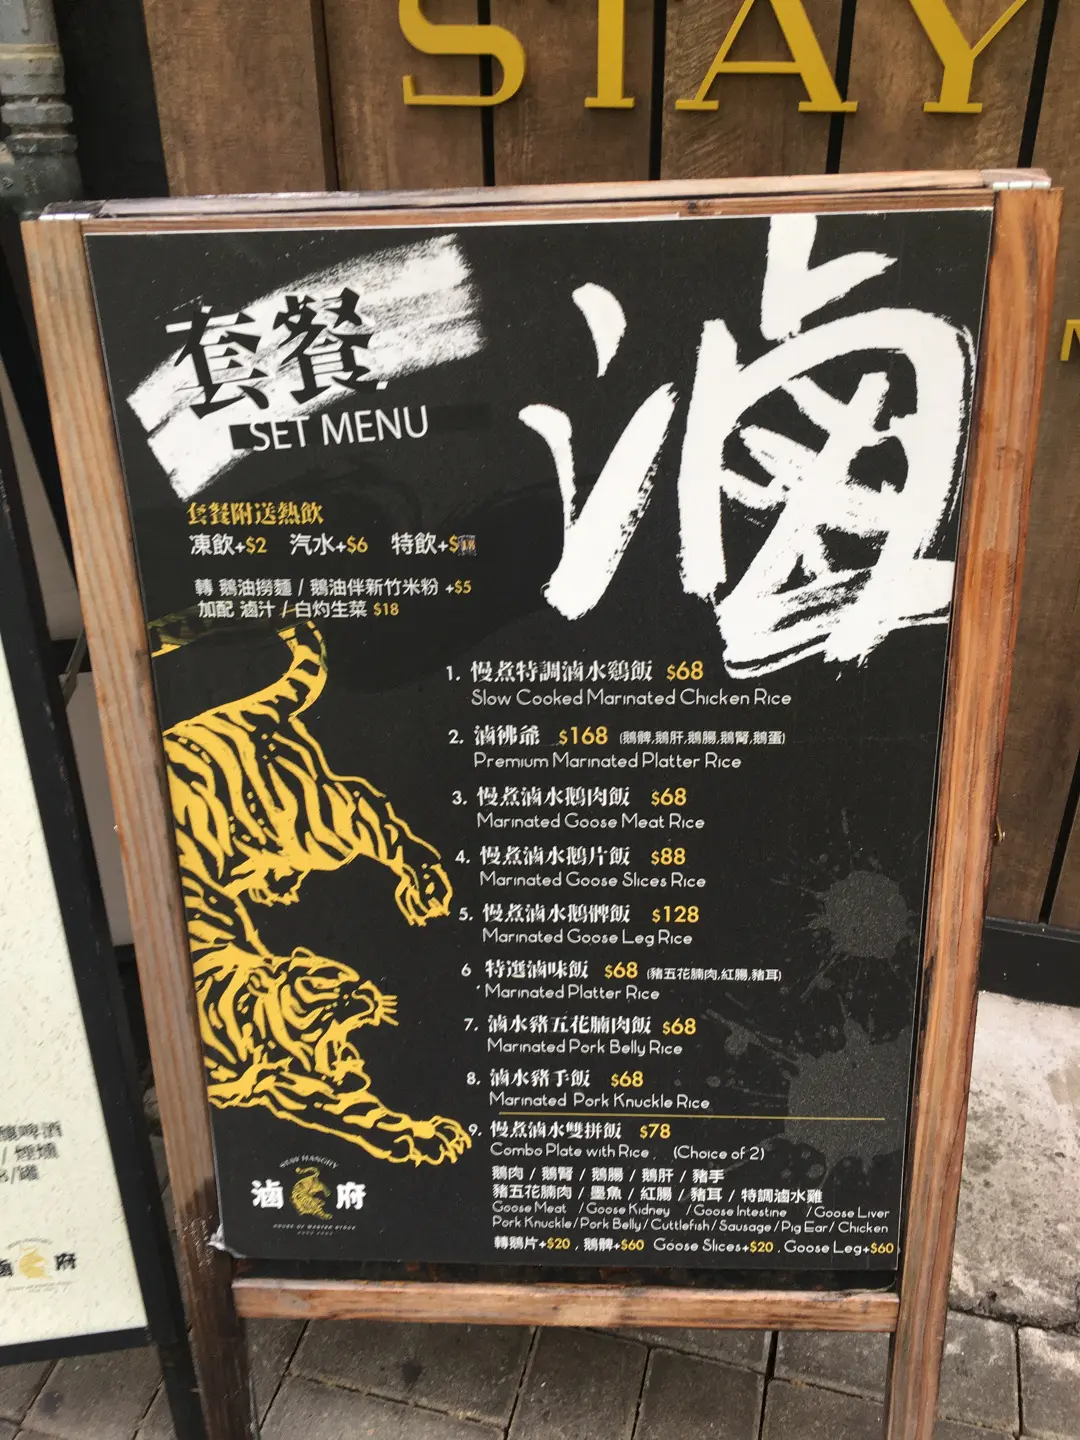 STAY
滷
套餐
SET MENU
套餐附送熱飲
凍飲+$2 汽水+$6 特飲+$18
轉 鵝油撈麵 / 鵝油伴新竹米粉 +$5
加配 滷汁 / 白灼生菜 $18
1. 慢煮特調滷水鷄飯 $68
Slow Cooked Marinated Chicken Rice
2. 滷彿爺 $168 (鵝髀,鵝肝,鵝腸,鵝腎,鵝蛋)
Premium Marinated Platter Rice
3. 慢煮滷水鵝肉飯 $68
Marinated Goose Meat Rice
4. 慢煮滷水鵝片飯 $88
Marinated Goose Slices Rice
5. 慢煮滷水鵝髀飯 $128
Marinated Goose Leg Rice
6 特選滷味飯 $68 (豬五花腩肉,紅腸,豬耳)
Marinated Platter Rice
7. 滷水豬五花腩肉飯 $68
Marinated Pork Belly Rice
8. 滷水豬手飯 $68
Marinated Pork Knuckle Rice
9. 慢煮滷水雙拼飯 $78
Combo Plate with Rice . (Choice of 2)
鵝肉 / 鵝腎 / 鵝腸 / 鵝肝 / 豬手
豬五花腩肉 / 墨魚 / 紅腸 / 豬耳 / 特調滷水雞
Goose Meat / Goose Kidney / Goose Intestine / Goose Liver
Pork Knuckle / Pork Belly / Cuttlefish / Sausage / Pig Ear / Chicken
轉鵝片+$20 , 鵝髀+$60 Goose Slices+$20 , Goose Leg+$60
STAY HANGRY
滷 府
釀啤酒
/ 煙燻
/罐
滷 府